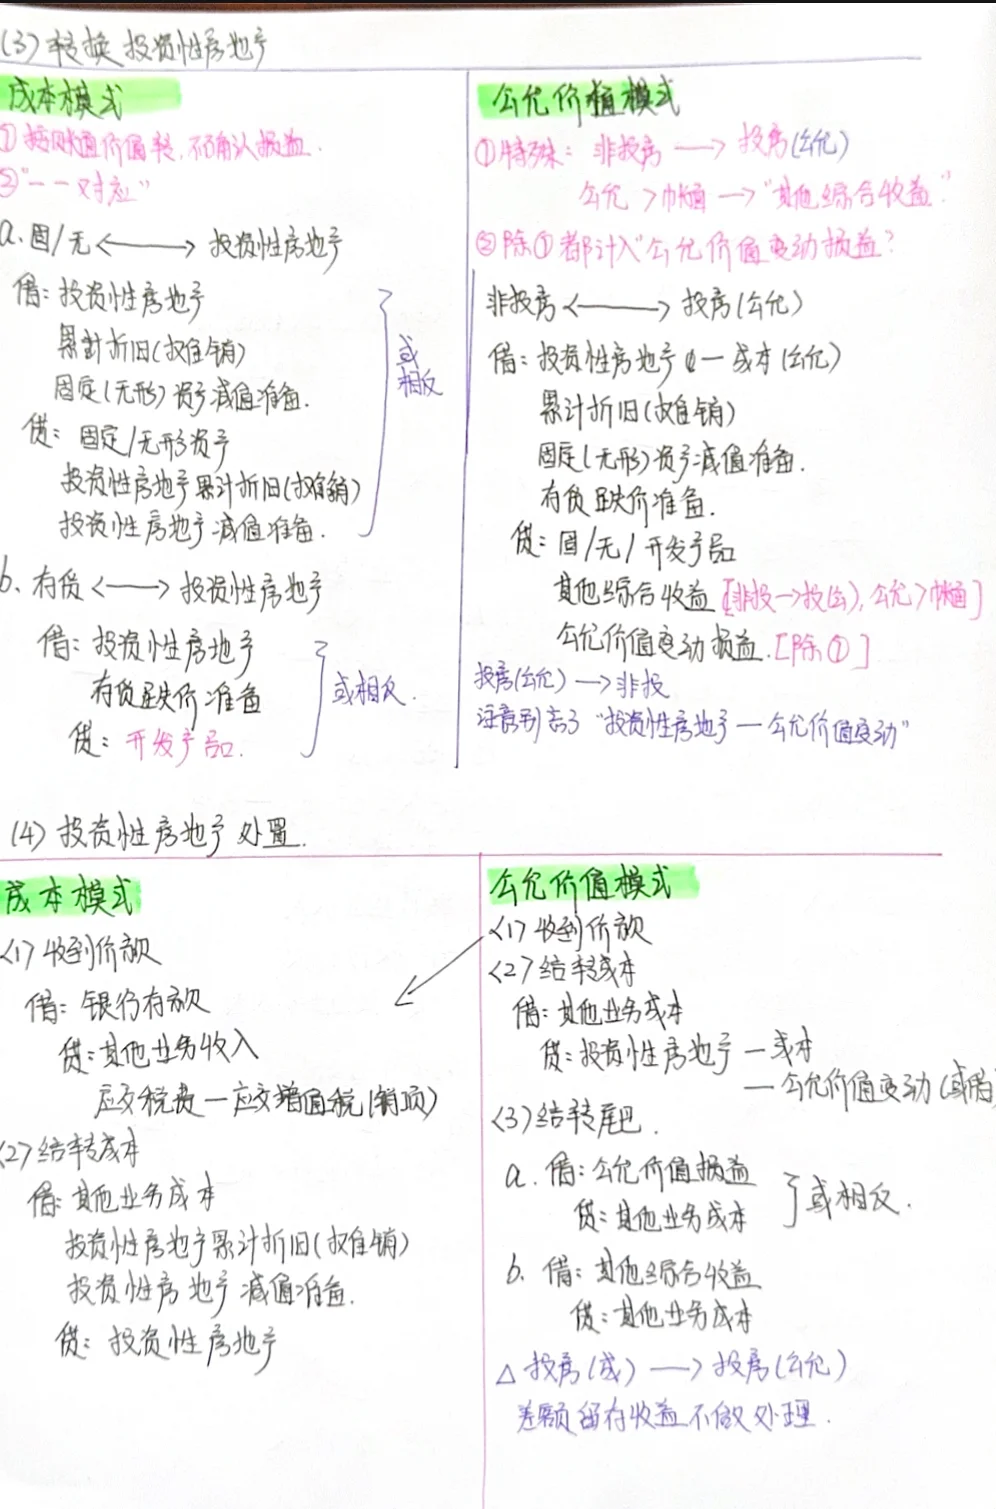 (3) 转换 投资性房地产
成本模式
① 按账面价值转,不确认损益.
②"一一对应"
a. 固/无 <——> 投资性房地产
借: 投资性房地产
累计折旧(摊销)
固定(无形)资产减值准备.
贷: 固定/无形资产
投资性房地产累计折旧(摊销)
投资性房地产减值准备.
或
相反
b. 存货 <——> 投资性房地产
借: 投资性房地产
存货跌价准备
贷: 开发产品.
或相反.
公允价值模式
①特殊: 非投房 ——> 投房(公允)
公允>账面 —> "其他综合收益."
②除①都计入"公允价值变动损益"
非投房 <——> 投房(公允)
借: 投资性房地产 — 成本(公允)
累计折旧(摊销)
固定(无形)资产减值准备.
存货跌价准备.
贷: 固/无/开发产品
其他综合收益 [非投→投(公), 公允>账面]
公允价值变动损益.[除①]
投房(公允) —> 非投
注意别忘了 "投资性房地产—公允价值变动"
(4) 投资性房地产处置.
成本模式
<1>收到价款
借: 银行存款
贷: 其他业务收入
应交税费—应交增值税(销项)
<2>结转成本
借: 其他业务成本
投资性房地产累计折旧(摊销)
投资性房地产减值准备.
贷: 投资性房地产
公允价值模式
<1>收到价款
<2>结转成本
借: 其他业务成本
贷: 投资性房地产 —成本
—公允价值变动(或借)
<3>结转尾巴.
a. 借: 公允价值损益
贷: 其他业务成本
或相反.
b. 借: 其他综合收益
贷: 其他业务成本
△ 投房(成) —> 投房(公允)
差额留存收益不做处理.